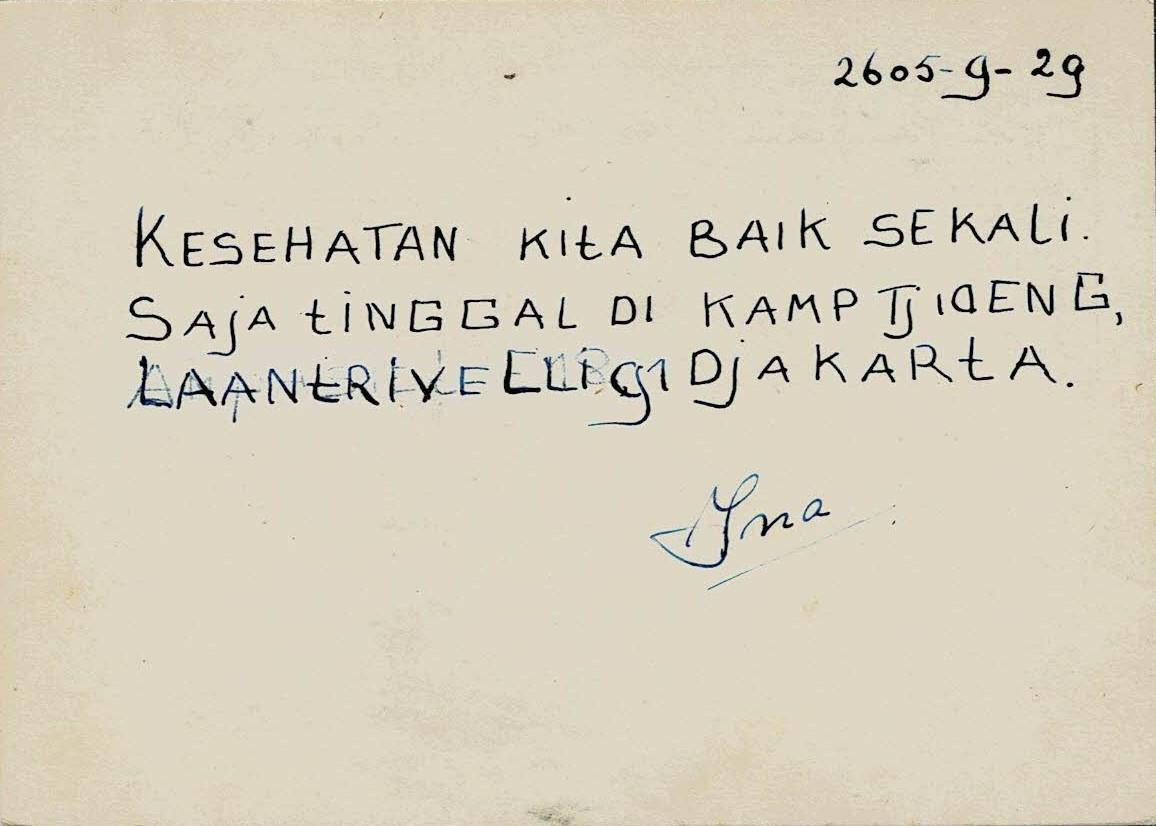 2605-9-29
KESEHATAN KITA BAIK SEKALI.
SAJA TINGGAL DI KAMP TJIDENG,
LAAN TRIVELLI 91 DJAKARTA.
Ina